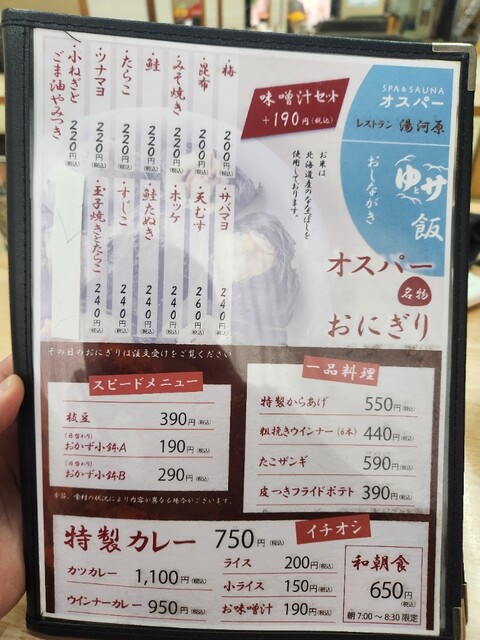 SPA & SAUNA
オスパー
レストラン 湯河原
サ飯
ゆと
おしながき
味噌汁セット
+190円(税込)
お米は
北海道産のななつぼしを
使用しております。
オスパー
名物
おにぎり
・梅 200円(税込)
・昆布 200円(税込)
・みそ焼き 220円(税込)
・鮭 220円(税込)
・たらこ 220円(税込)
・ツナマヨ 220円(税込)
・小ねぎと
ごま油やみつき 220円(税込)
・サバマヨ 240円(税込)
・天むす 260円(税込)
・ホッケ 240円(税込)
・鮭たぬき 240円(税込)
・すじこ 240円(税込)
・玉子焼きとたらこ 240円(税込)
その日のおにぎりは注文受けをご覧ください
スピードメニュー
枝豆 390円(税込)
(日替わり)
おかず小鉢A 190円(税込)
(日替わり)
おかず小鉢B 290円(税込)
季節、食材の状況により内容が異なる場合がございます。
一品料理
特製からあげ 550円(税込)
粗挽きウインナー(6本) 440円(税込)
たこザンギ 590円(税込)
皮つきフライドポテト 390円(税込)
特製カレー 750円(税込) イチオシ
カツカレー 1,100円(税込)
ウインナーカレー 950円(税込)
ライス 200円(税込)
小ライス 150円(税込)
お味噌汁 190円(税込)
和朝食
650円(税込)
朝7:00〜8:30限定